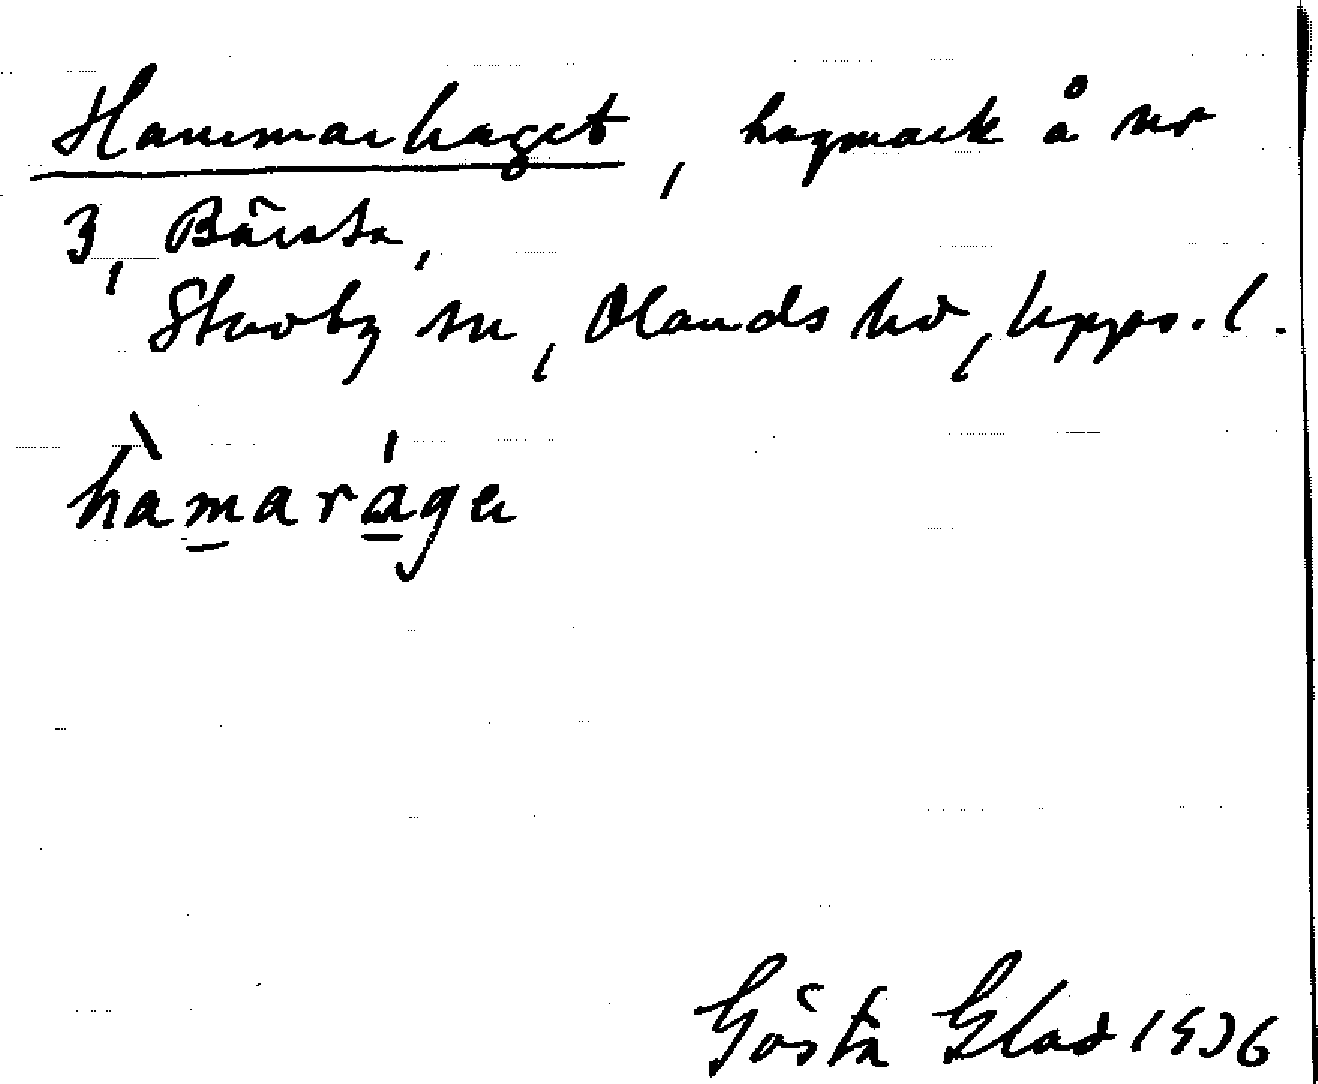 Hammarhaget, hagmark å nr
3, Bärsta,
Stavby sn, Olands hd, Upps. l.
hàmaráge
Gösta Glad 1936